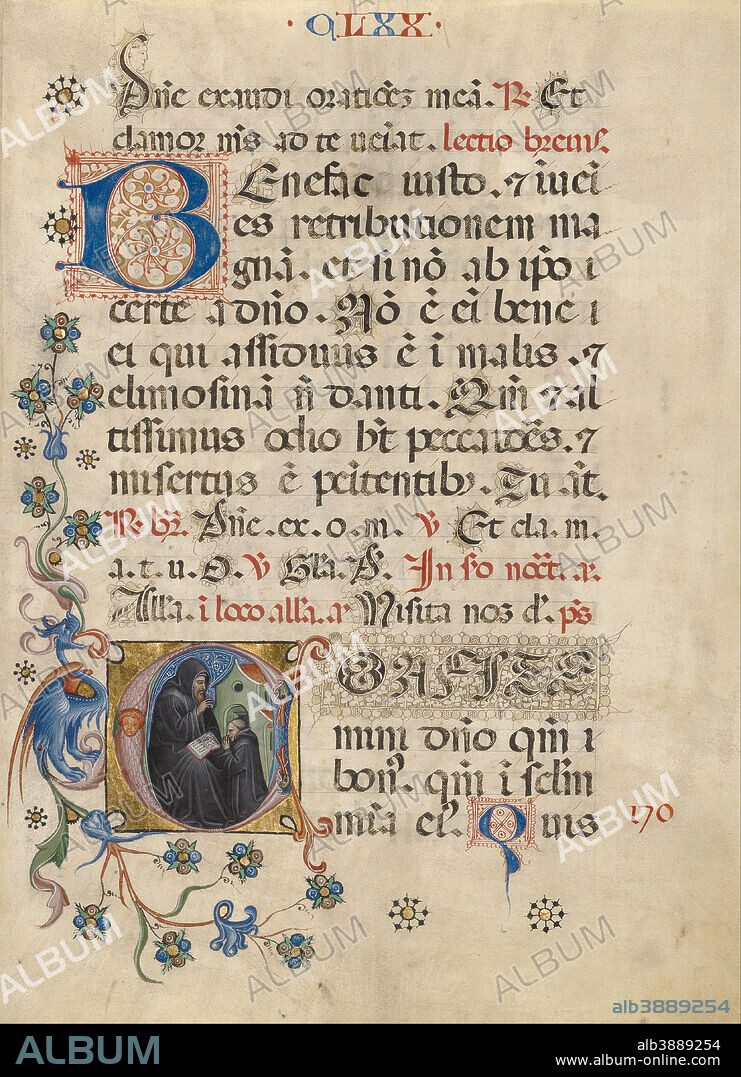 ·QLXX·
Dñe exaudi orationez meā. R. Et
clamor mẽs ad te ueĩat. lectio breuis.
BEnefac iusto. ⁊ iuẽi
es retributionem ma
gnā. et si nõ ab ip̃o i
certe a dño. Nõ ẽ ei bene i
ei qui assiduus ẽ ĩ malis. ⁊
elimosinā ñ danti. Qm̃ ⁊ al
tissimus odio hẽt peccatores. ⁊
misertus ẽ peñitentibꝫ. Tu aũt.
R. br̃. Dñe. ex. o. m. V Et cla. m.
a. t. u. D. V Gl̃a. P. In sº noct̃. a.
Alla. ĩ loco all̃a. a. Visita nos d. ps̃
COnfITE
mini dño qm̃ i
bonꝰ. qm̃ ĩ sclm̃
mĩa eĩ. Quis
170
ALBUM
alb3889254
ALBUM
alb3889254
www.album-online.com